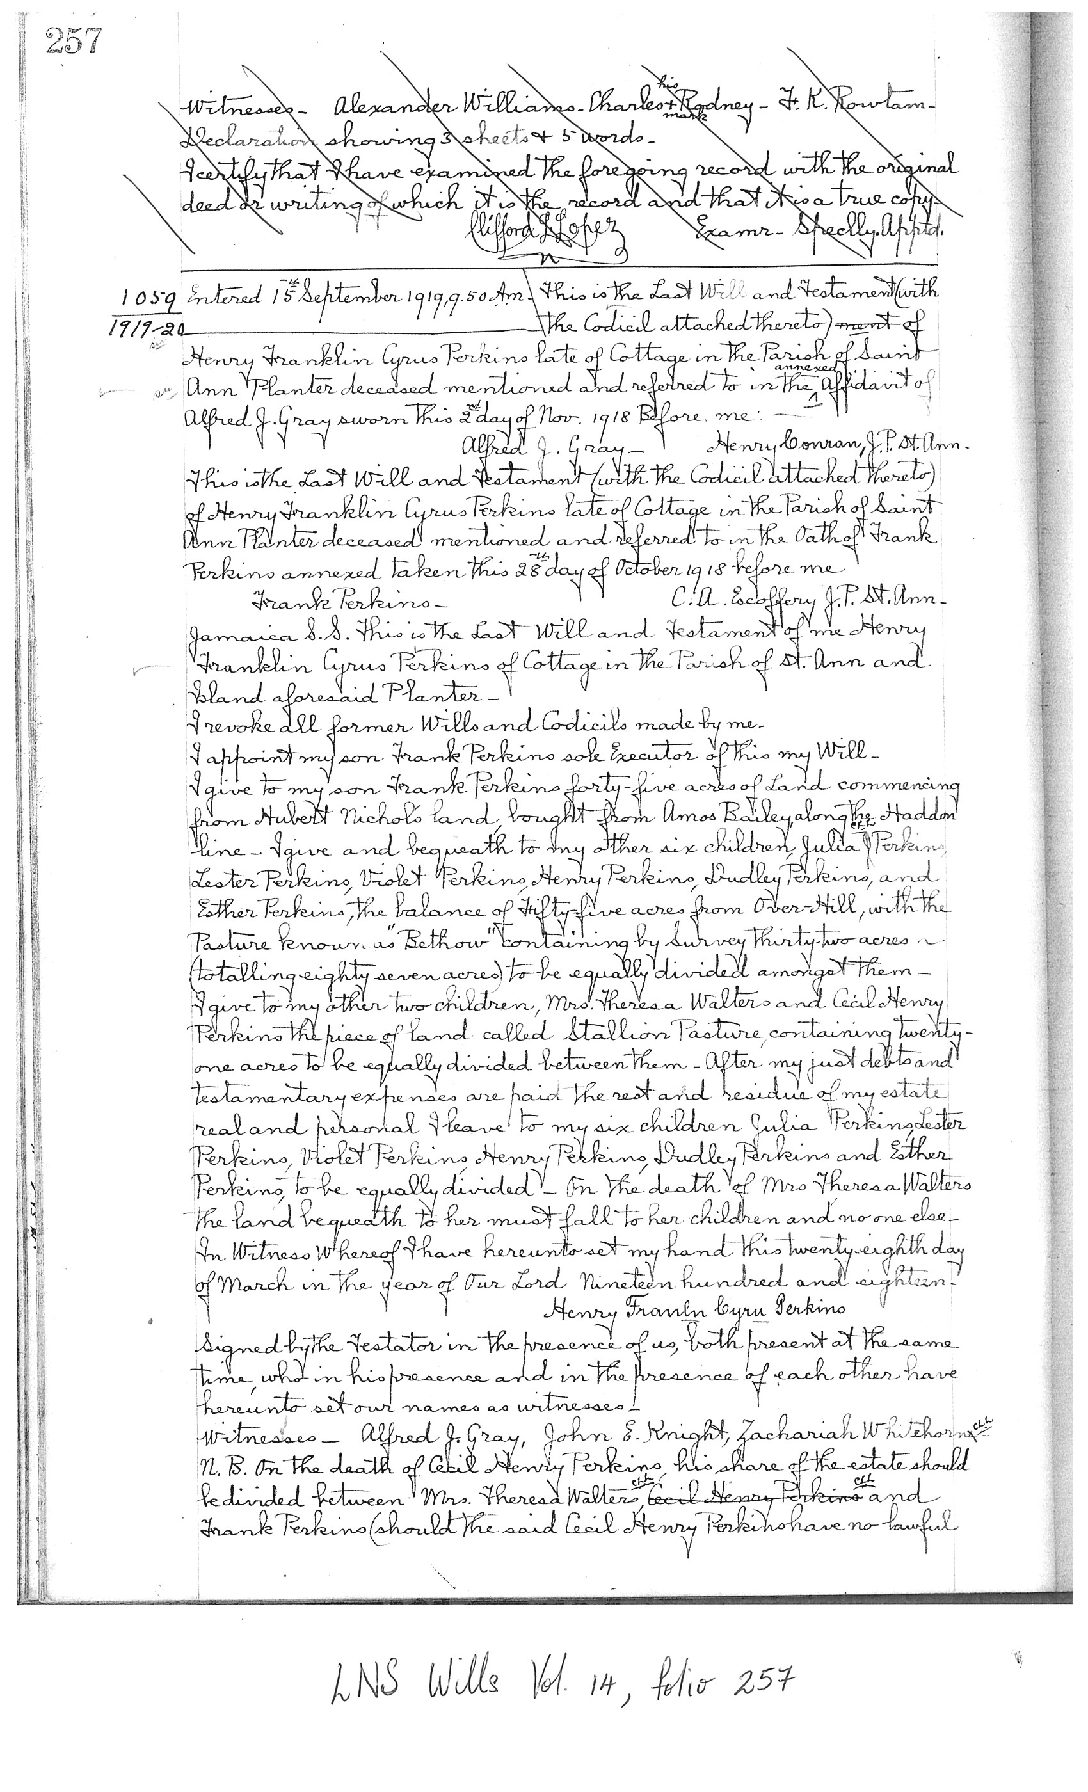 257
his
Witnesses - Alexander Williams - Charles + Rodney - F. K. Rowtam -
mark
Declaration showing 3 sheets & 5 words -
I certify that I have examined the foregoing record with the original
deed or writing of which it is the record and that it is a true copy -
Clifford L. Lopez Examr - Speclly. Apptd.
1059 Entered 15th September 1919, 9.50 A.m. This is the Last Will and Testament (with
1919-20 the Codicil attached thereto) ment of
Henry Franklin Cyrus Perkins late of Cottage in the Parish of Saint
annexed
Ann Planter deceased mentioned and referred to in the Affidavit of
Alfred J. Gray sworn this 2nd day of Nov. 1918 Before me: -
Alfred J. Gray - Henry Conran, J.P. St. Ann -
This is the Last Will and Testament (with the Codicil attached thereto)
of Henry Franklin Cyrus Perkins late of Cottage in the Parish of Saint
Ann Planter deceased mentioned and referred to in the Oath of Frank
Perkins annexed taken this 28th day of October 1918 before me
Frank Perkins - C. A. Escoffery J.P. St. Ann -
Jamaica S.S. This is the Last Will and Testament of me Henry
Franklin Cyrus Perkins of Cottage in the Parish of St. Ann and
Island aforesaid Planter -
I revoke all former Wills and Codicils made by me -
I appoint my son Frank Perkins sole Executor of this my Will -
I give to my son Frank Perkins forty-five acres of Land commencing
from Hubert Nichols land, bought from Amos Bailey, along the Haddon
line - I give and bequeath to my other six children, Julia Perkins,
Lester Perkins, Violet Perkins, Henry Perkins, Dudley Perkins, and
Esther Perkins, the balance of Fifty-five acres from Over Hill, with the
Pasture known as "Bethow" containing by Survey thirty-two acres -
(totalling eighty seven acres) to be equally divided amongst them -
I give to my other two children, Mrs. Theresa Walters and Cecil Henry
Perkins the piece of land called Stallion Pasture, containing twenty-
one acres to be equally divided between them - After my just debts and
testamentary expenses are paid the rest and residue of my estate
real and personal I leave to my six children Julia Perkins, Lester
Perkins, Violet Perkins, Henry Perkins, Dudley Perkins and Esther
Perkins, to be equally divided - On the death of Mrs Theresa Walters
the land bequeath to her must fall to her children and no one else -
In Witness Whereof I have hereunto set my hand this twenty-eighth day
of March in the year of Our Lord Nineteen hundred and eighteen -
Henry Franln Cyru Perkins
Signed by the Testator in the presence of us, both present at the same
time, who in his presence and in the presence of each other have
hereunto set our names as witnesses -
Witnesses - Alfred J. Gray, John E. Knight, Zachariah Whitehorn
N.B. On the death of Cecil Henry Perkins, his share of the estate should
be divided between Mrs. Theresa Walters, Cecil Henry Perkins and
Frank Perkins (should the said Cecil Henry Perkins have no lawful
LNS Wills Vol. 14, folio 257